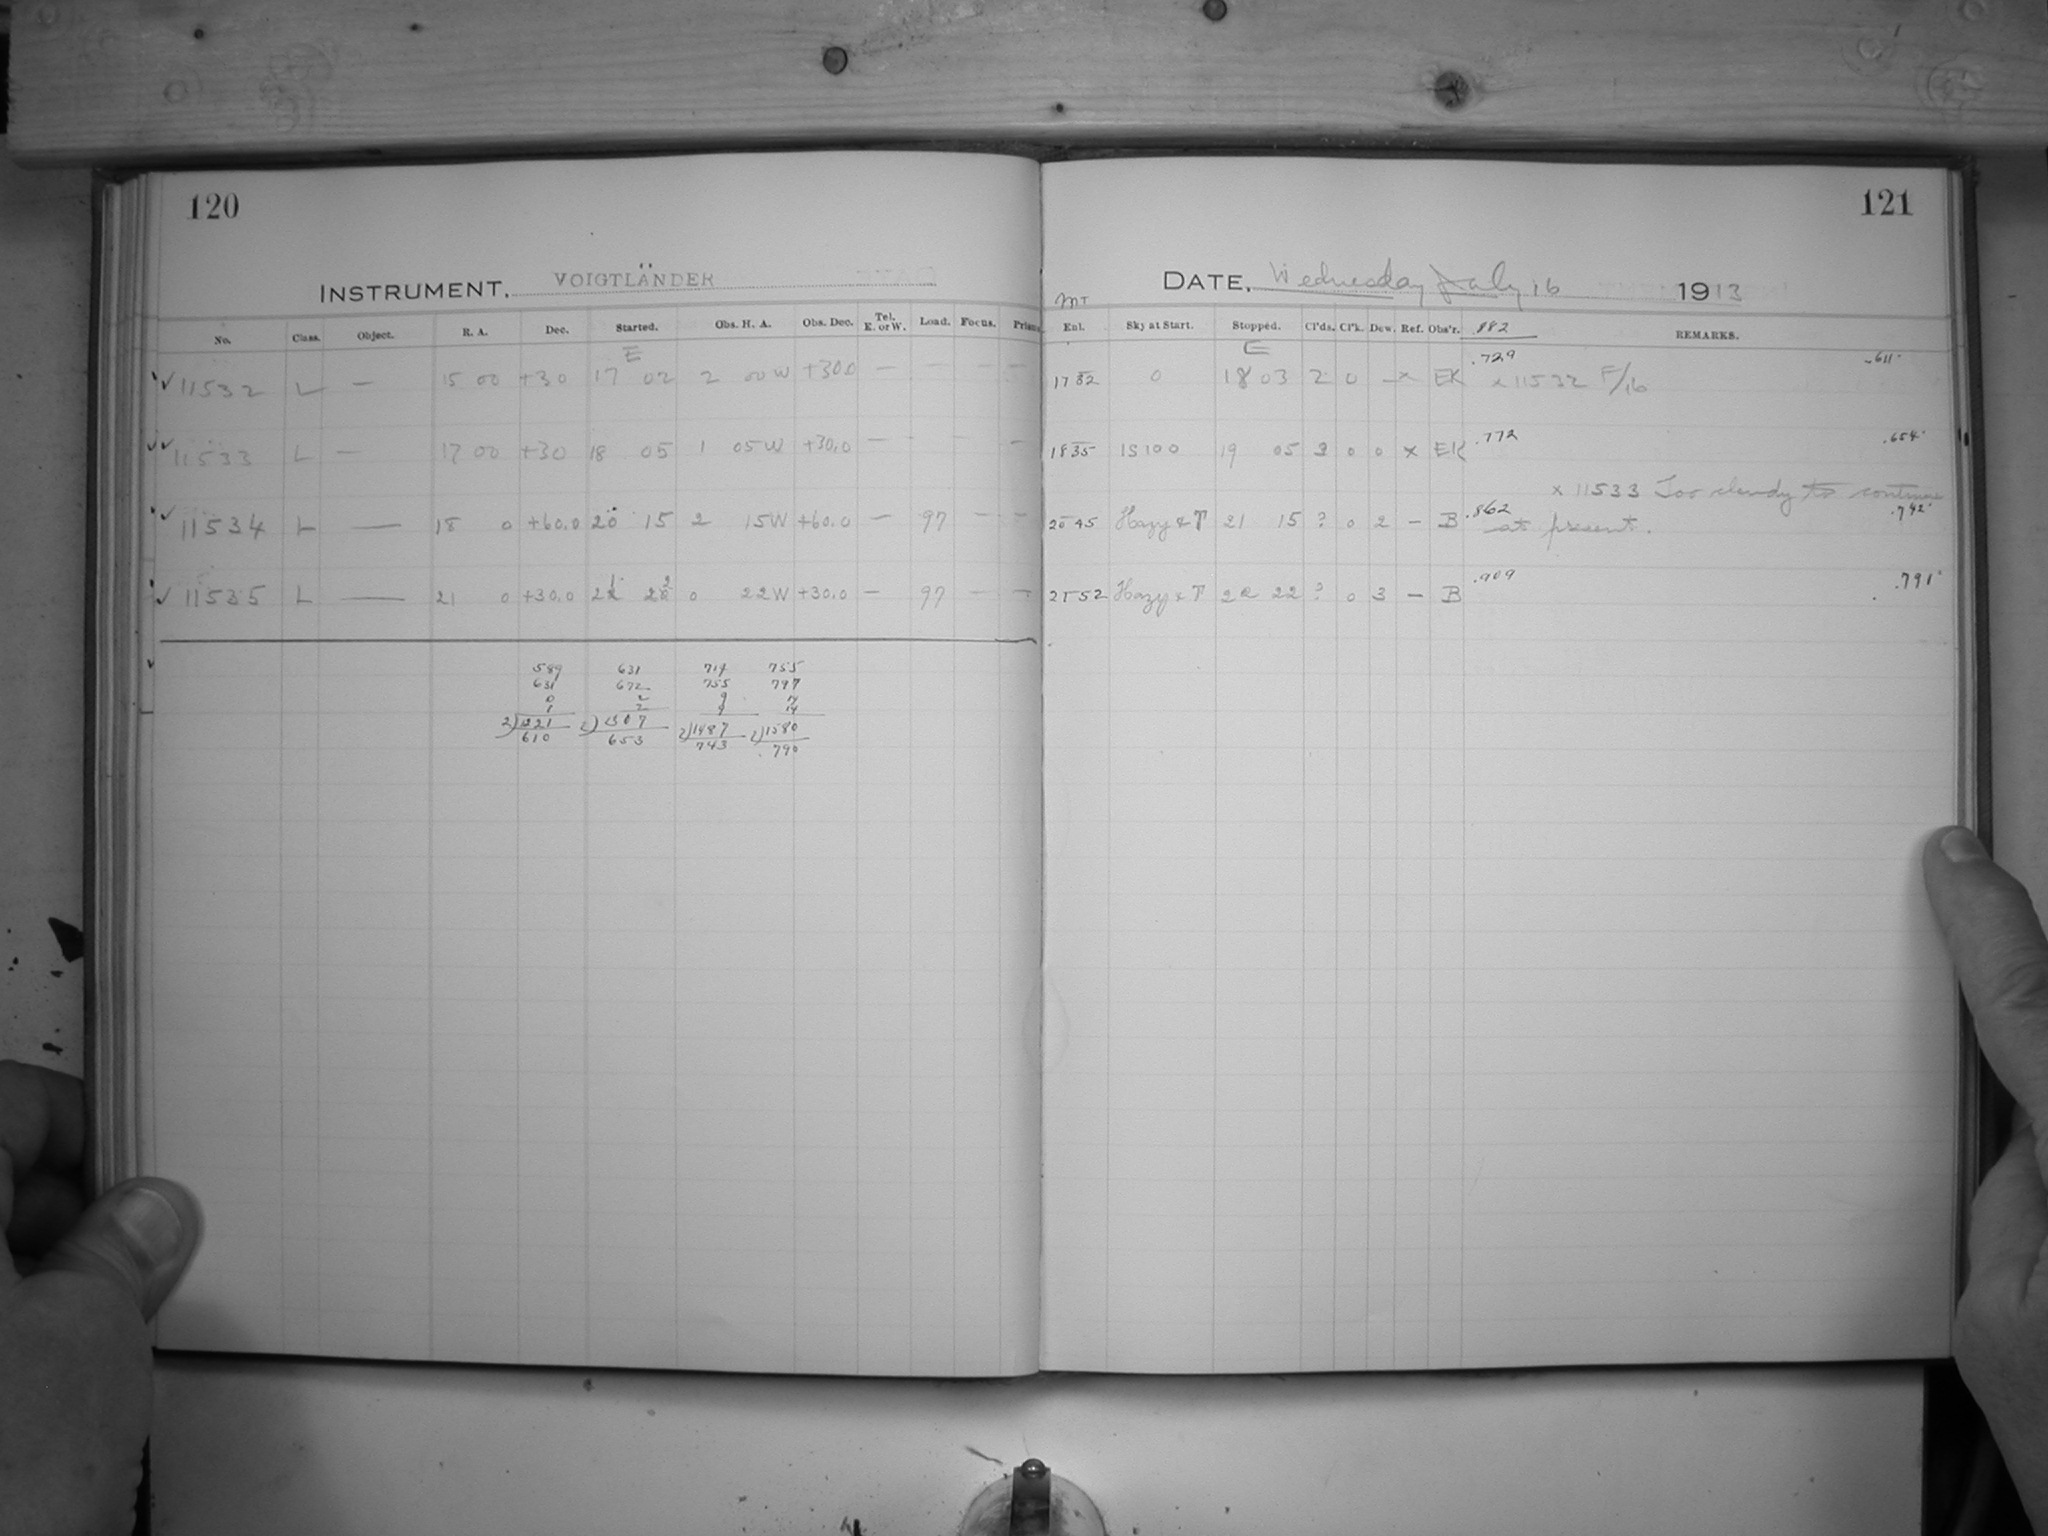 120
121
INSTRUMENT. VOIGTLÄNDER
DATE. Wednesday July 16 1913
No. Class. Object. R. A. Dec. Started. Obs. H. A. Obs. Dec. Tel. E. or W. Load. Focus. Prism
MT Exl. Sky at Start. Stopped. Cl'ds. Cl'k. Dew. Ref. Obs'r. .882 REMARKS.
E
E
✓ 11532 L — 15 00 +30 17 02 2 00 W +30.0 — — — —
1732 0 18 03 2 0 — x EK .729 x 11532 F/16 .611
✓ 11533 L — 17 00 +30 18 05 1 05 W +30.0 — —
1835 IS100 19 05 3 0 0 x EK .772 .654
x 11533 Too cloudy to continue
✓ 11534 L — 18 0 +60.0 20 15 2 15 W +60.0 — 97 — —
2045 Hazy & T 21 15 ? 0 2 — B .862 at present. .742
✓ 11535 L — 21 0 +30.0 21 22 0 22 W +30.0 — 97 — —
2152 Hazy & T 22 22 ? 0 3 — B .909 .791
589 631 714 755
631 672 755 797
0 2 9 14
1 2 9 14
2)1221 2)1307 2)1487 2)1580
610 653 743 .790